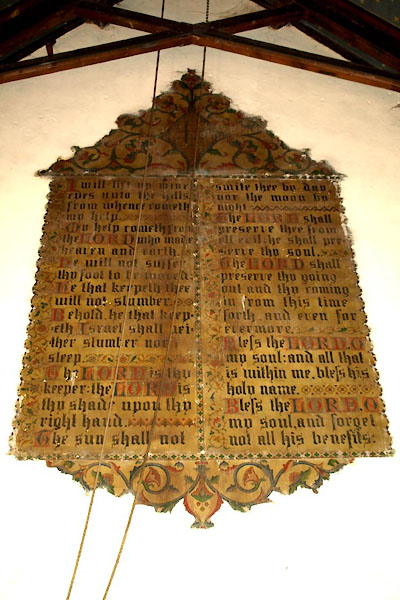 I will lift up mine
eyes unto the hills
from whence cometh
my help.
My help cometh from
the LORD who made
heaven and earth.
He will not suffer
thy foot to be moved
he that keepeth thee
will not slumber.
Behold, he that keep-
eth Israel shall nei-
ther slumber nor
sleep.
The LORD is thy
keeper: the LORD is
thy shade upon thy
right hand.
The sun shall not
smite thee by day
nor the moon by
night.
The LORD shall
preserve thee from
all evil, he shall pre-
serve thy soul.
The LORD shall
preserve thy going
out and thy coming
in from this time
forth and even for
evermore.
Bless the LORD, O
my soul: and all that
is within me, bless his
holy name.
Bless the LORD, O
my soul, and forget
not all his benefits: